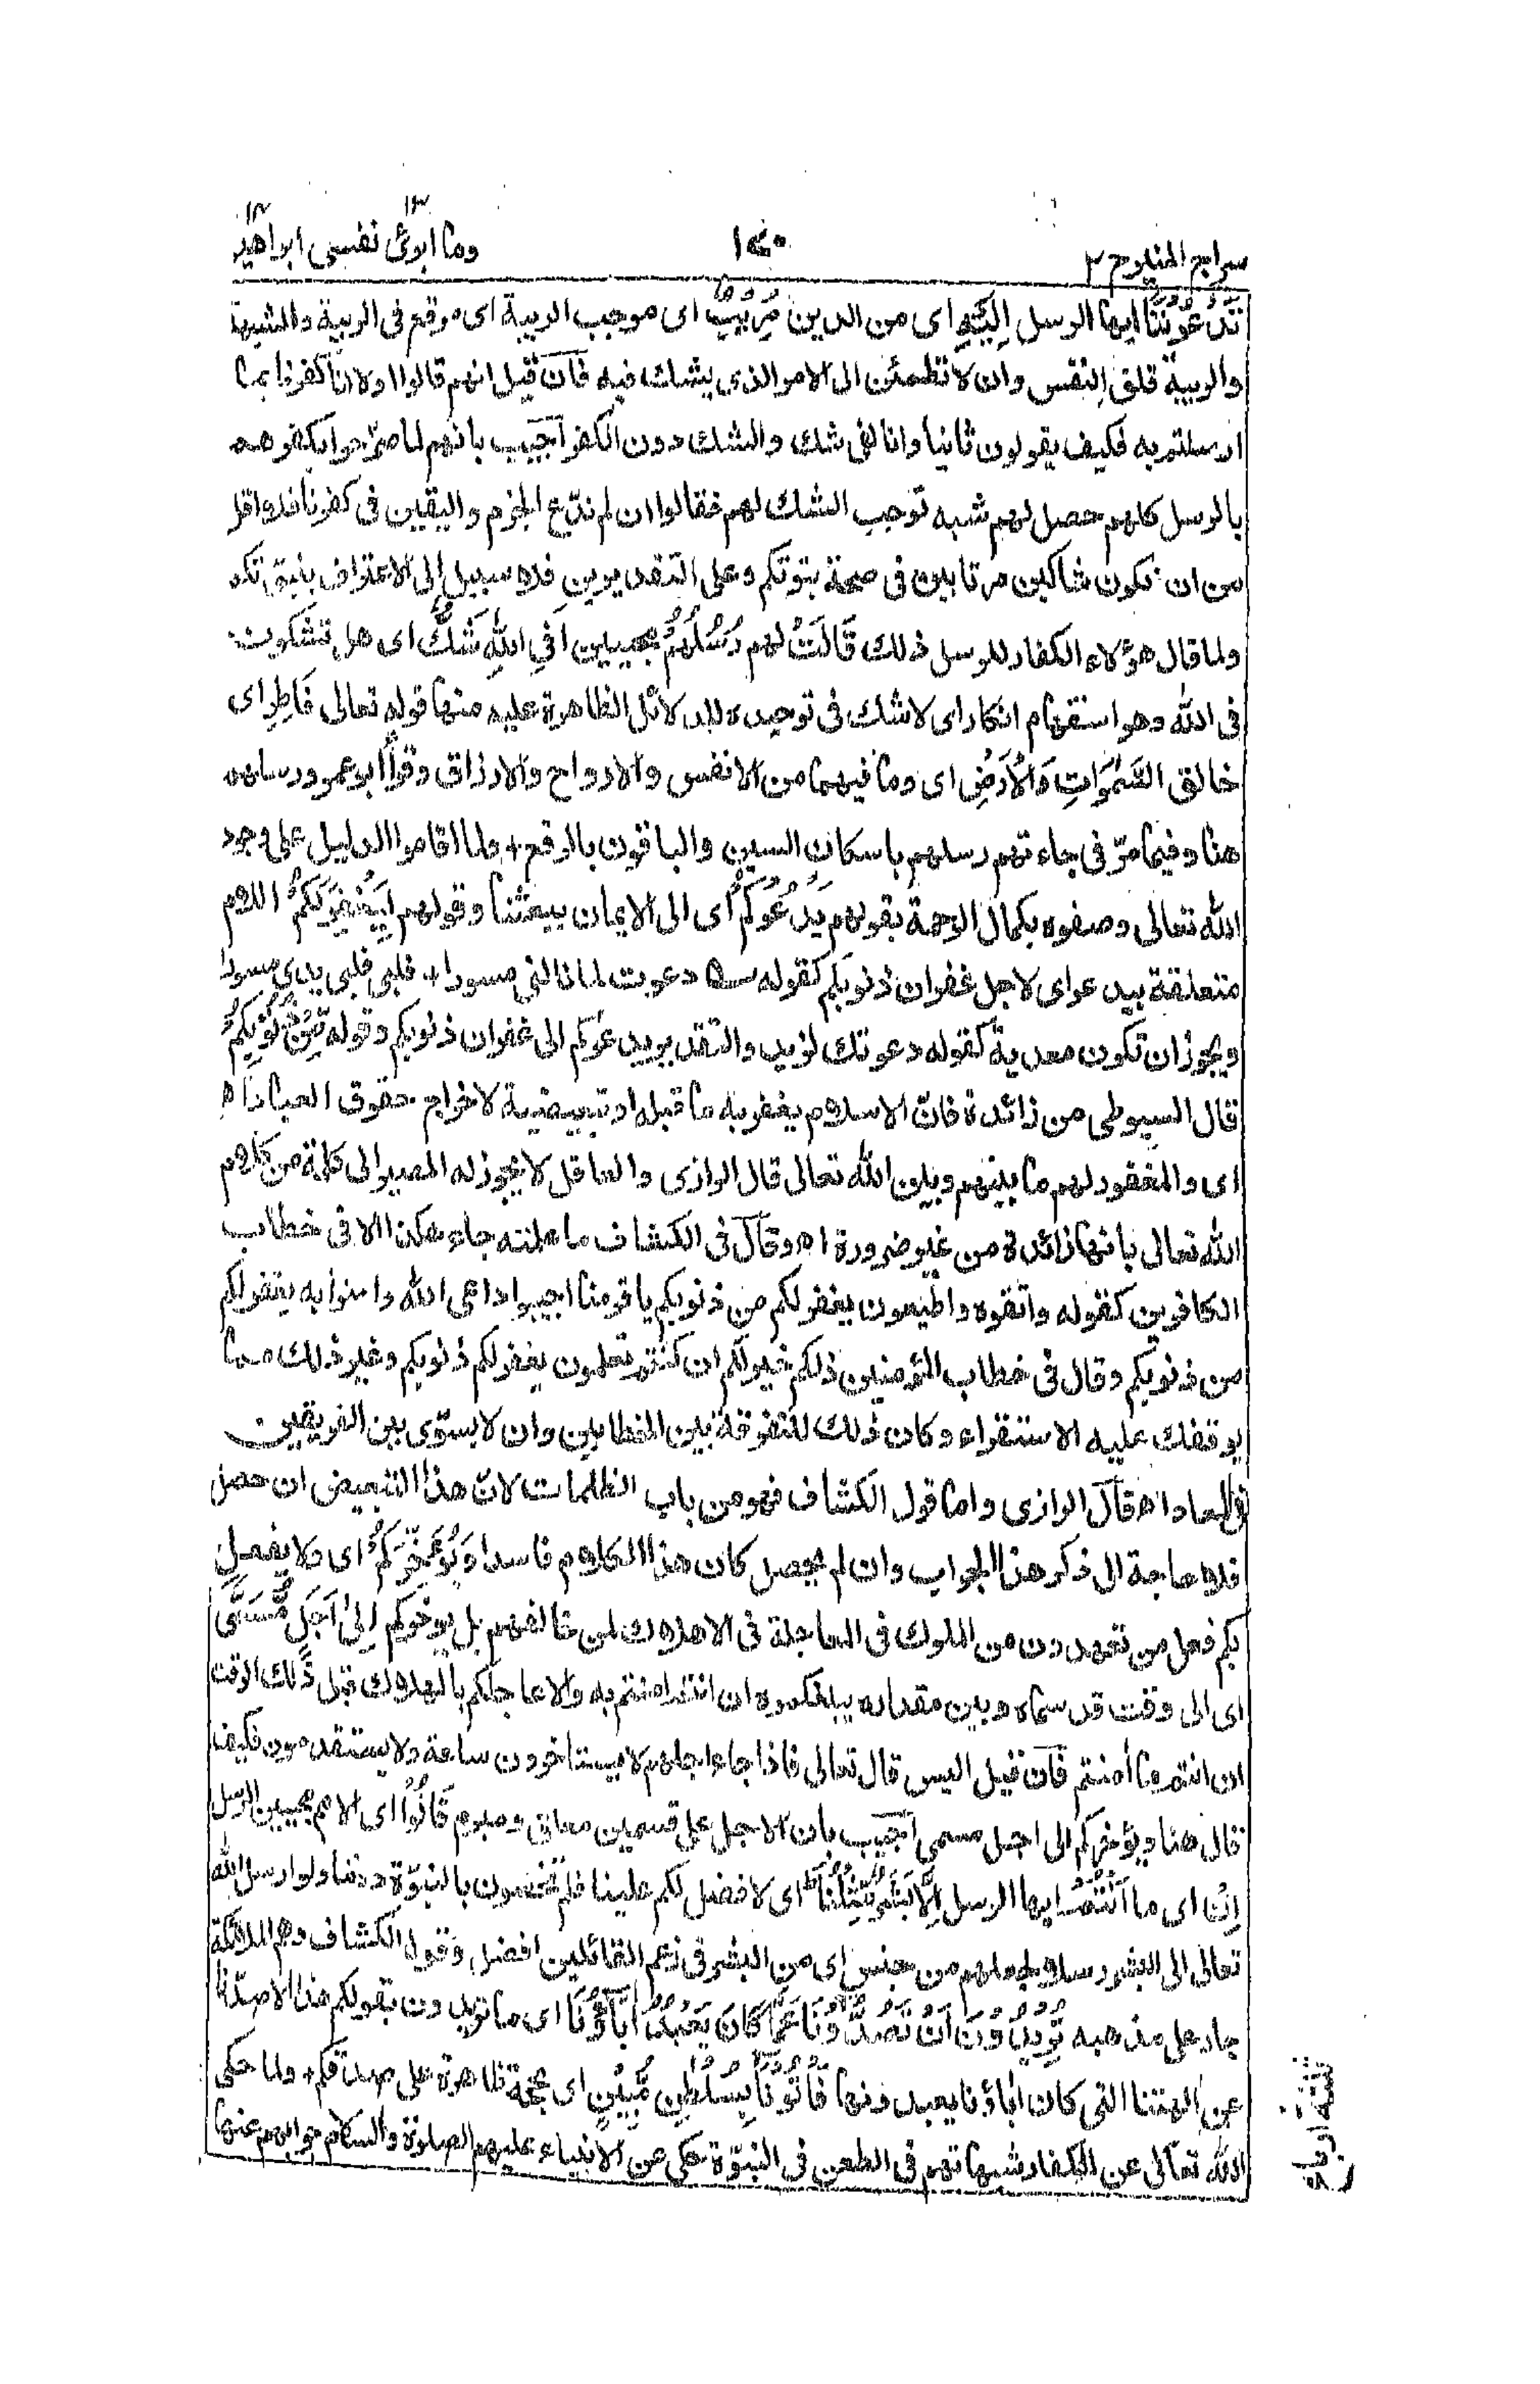 سراج المنير ج ٢
١٤٠
وما ابرئ نفسى ابراهيم
١٣
١٤
تَدْعُوْنَنَا ايها الرسل اِلَيْهِ اى من الدين مُرِيْبٍ اى موجب الريبة اى موقع فى الريبة والشبهة
والريبة قلق النفس وان لا تطمئن الى الامر الذى يشك فيه فان قيل انهم قالوا اولا انا كفرنا بما
ارسلتم به فكيف يقولون ثانيا وانا لفى شك والشك دون الكفر اجيب بانهم لما صرّحوا بكفرهم
بالرسل كانهم حصل لهم شبه توجب الشك لهم فقالوا ان لم ندّع الجزم واليقين فى كفرنا فلا اقل
من ان نكون شاكين مرتابين فى صحة نبوتكم وعلى التقديرين فلا سبيل الى الاعتراف بنبوتكم
ولما قال هؤلاء الكفار للرسل ذلك قَالَتْ لهم رُسُلُهُمْ مجيبين اَفِى اللّٰهِ شَكٌّ اى هل تشكون
فى الله وهو استفهام انكار اى لا شك فى توحيده للدلائل الظاهرة عليه منها قوله تعالى فَاطِرِ اى
خالق السَّمٰوَاتِ وَالْاَرْضِ اى وما فيهما من الانفس والارواح والارزاق وقرأ ابو عمرو رسلهم
هنا وفيما مرّ فى جاءتهم رسلهم باسكان السين والباقون بالرفع + ولما اقاموا الدليل على وجود
الله تعالى وصفوه بكمال الرحمة بقولهم يَدْعُوْكُمْ اى الى الايمان ببعثنا وقولهم لِيَغْفِرَ لَكُمْ اللام
متعلقة بيدعو اى لاجل غفران ذنوبكم كقوله دعوت لما نابنى مسورا + فلبى فلبى يدى مسور
ويجوز ان تكون معدية كقوله دعوتك لزيد والتقدير يدعوكم الى غفران ذنوبكم وقوله مِّنْ ذُنُوْبِكُمْ
قال السيوطى من زائدة فانّ الاسلام يغفر به ما قبله او تبعيضية لاخراج حقوق العباد اه
اى والمغفور لهم ما بينهم وبين الله تعالى قال الرازى والعاقل لا يجوز له المصير الى كلمة من كلام
الله تعالى بانها زائدة من غير ضرورة اه وقال فى الكشاف ما علمته جاء هكذا الا فى خطاب
الكافرين كقوله واتقوه واطيعون يغفر لكم من ذنوبكم يا قومنا اجيبوا داعى الله وامنوا به يغفر لكم
من ذنوبكم وقال فى خطاب المؤمنين ذلكم خير لكم ان كنتم تعلمون يغفر لكم ذنوبكم وغير ذلك مما
يوقفك عليه الاستقراء وكان ذلك للتفرقة بين الخطابين وان لا يسوّى بين الفريقين
فى المعاد اه قال الرازى واما قول الكشاف فهو من باب الطامات لانّ هذا التبعيض ان حصل
فلا حاجة الى ذكر هذا الجواب وان لم يحصل كان هذا الكلام فاسدا وَيُؤَخِّرَكُمْ اى ولا يفعل
بكم فعل من تعهدون من الملوك فى المعاجلة فى الاهلاك لمن خالفهم بل يؤخركم اِلٰى اَجَلٍ مُّسَمًّى
اى الى وقت قد سماه وبين مقداره يبلغكموه ان انتم امنتم به والا عاجلكم بالهلاك قبل ذلك الوقت
ان انتم ما أمنتم فان قيل اليس قال تعالى فاذا جاء اجلهم لا يستأخرون ساعة ولا يستقدمون فكيف
قال هنا ويؤخركم الى اجل مسمى اجيب بان الاجل على قسمين معلق ومبرم قَالُوْا اى الامم مجيبين الرسل
اِنْ اى ما اَنْتُمْ ايها الرسل اِلَّا بَشَرٌ مِّثْلُنَا اى لا فضل لكم علينا فلم تخصون بالنبوّة دوننا ولو ارسل الله
تعالى الى البشر رسلا لجعلهم من جنس اى من البشر فى زعم القائلين افضل وقول الكشاف وهم الملائكة
جار على مذهبه تُرِيْدُوْنَ اَنْ تَصُدُّوْنَا عَمَّا كَانَ يَعْبُدُ اٰبَآؤُنَا اى ما تريدون بقولكم هذا الا صدّنا
عن الهتنا التى كان اٰباؤنا يعبدونها فَأْتُوْنَا بِسُلْطٰنٍ مُّبِيْنٍ اى بحجة ظاهرة على صدقكم + ولما حكى
الله تعالى عن الكفار شبهاتهم فى الطعن فى النبوّة حكى عن الانبياء عليهم الصلوة والسلام جوابهم عنها